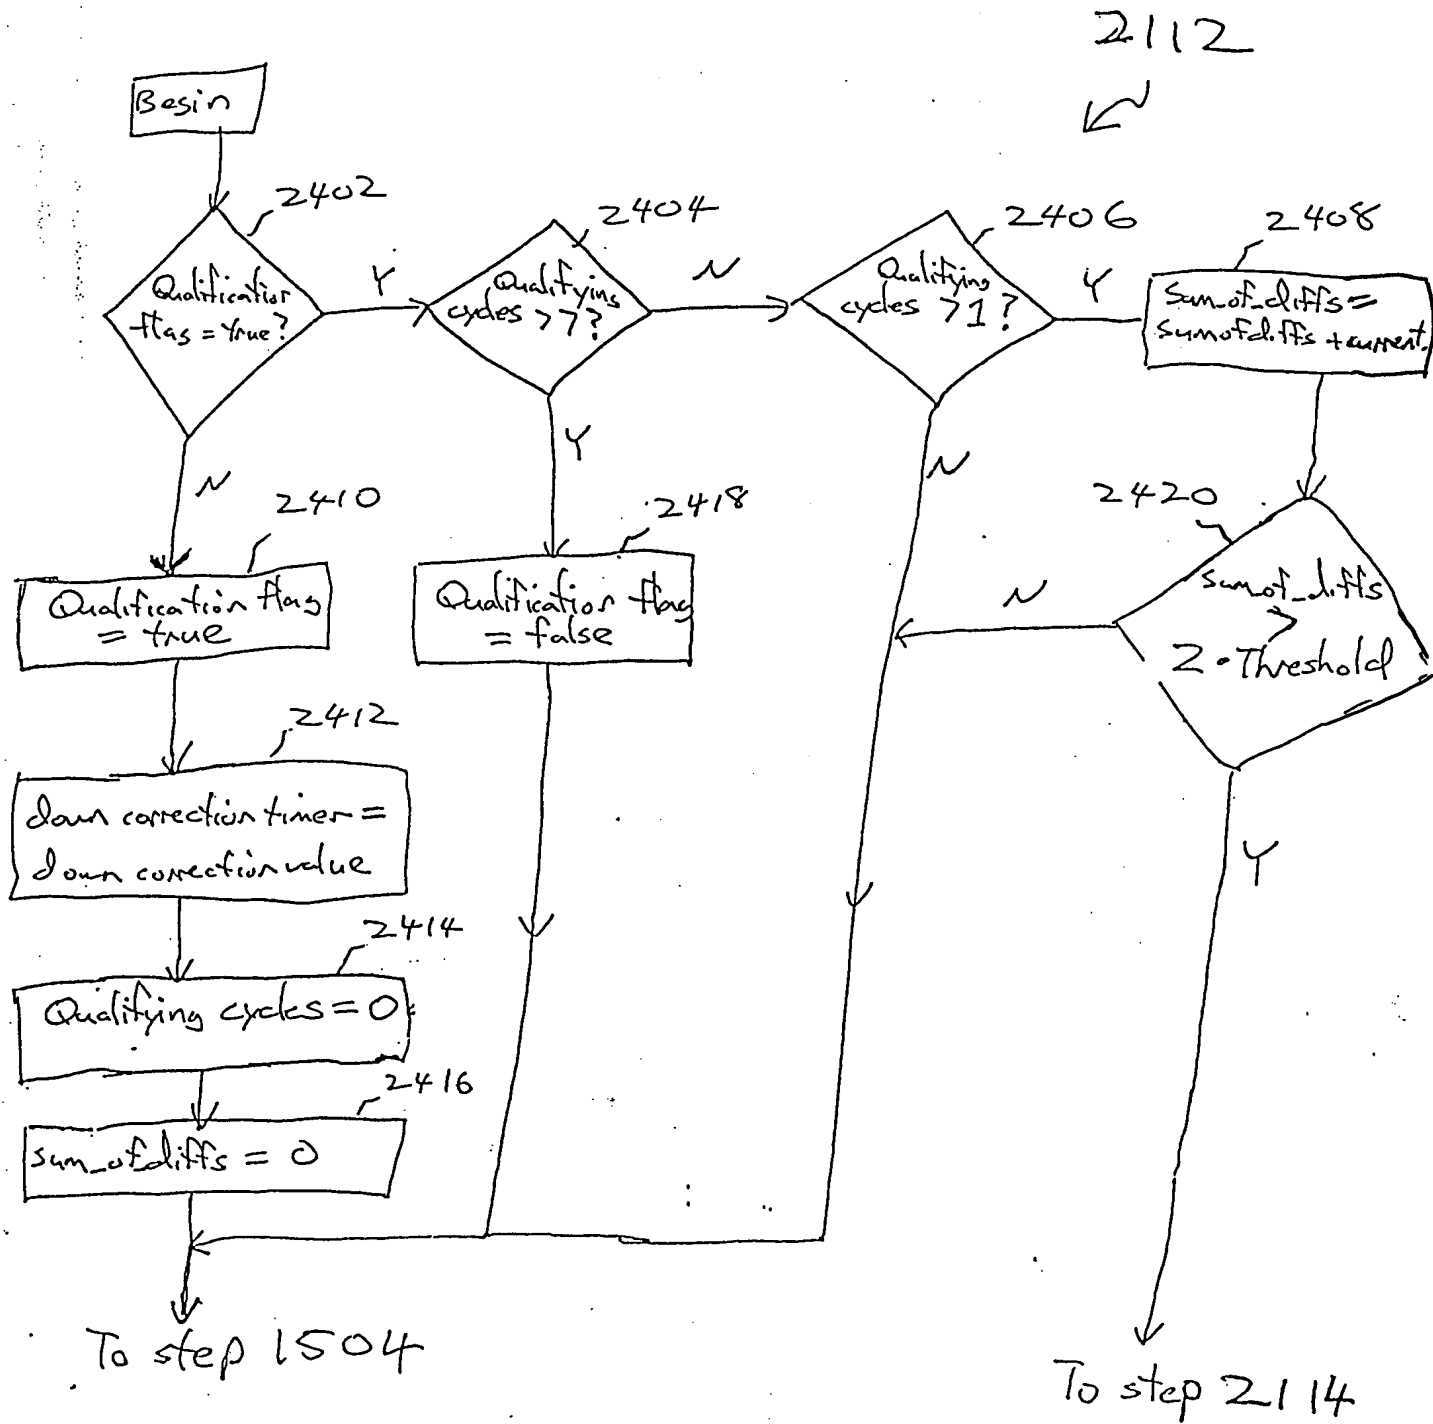 2112
Begin
2402
2404
2406
2408
Qualification
flag = true?
Y
Qualifying
cycles > 7?
N
Qualifying
cycles > 1?
Y
Sum_of_diffs =
sumofdiffs + current.
N
2410
Y
2418
N
2420
Qualification flag
= true
Qualification flag
= false
N
sum_of_diffs
>
2 • Threshold
2412
down correction timer =
down correction value
Y
2414
Qualifying cycles = 0
2416
sum_of_diffs = 0
To step 1504
To step 2114